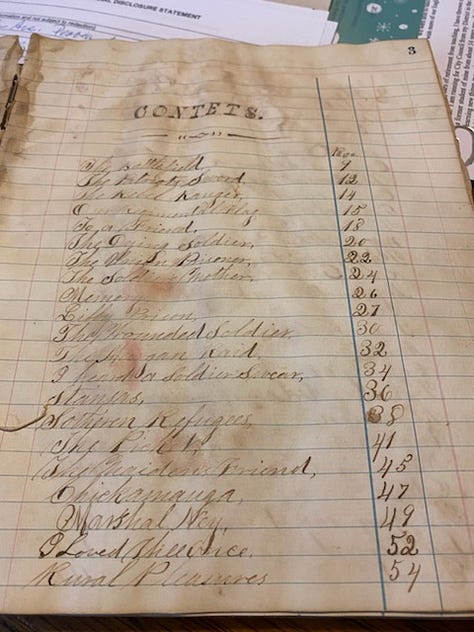 AL DISCLOSURE STATEMENT
3
CONTETS.
Page
The Battlefield, 9
The Patriots Sword, 12
The Rebel Ranger, 14
Our Regimental Flag 15
To a Friend, 18
The Dying Soldier, 20
The Union Prisoner, 22
The Soldier's Mother, 24
Memory, 26
Libby Prison, 27
The Wounded Soldier. 30
The Morgan Raid, 32
I heard a Soldier Swear, 34
Stanzas, 36
Sothern Refugees, 38
The Picket, 41
The Maidens Friend, 45
Chickamauga, 47
Marshal Ney, 49
I Loved Thee Once, 52
Rural Pleasures 54